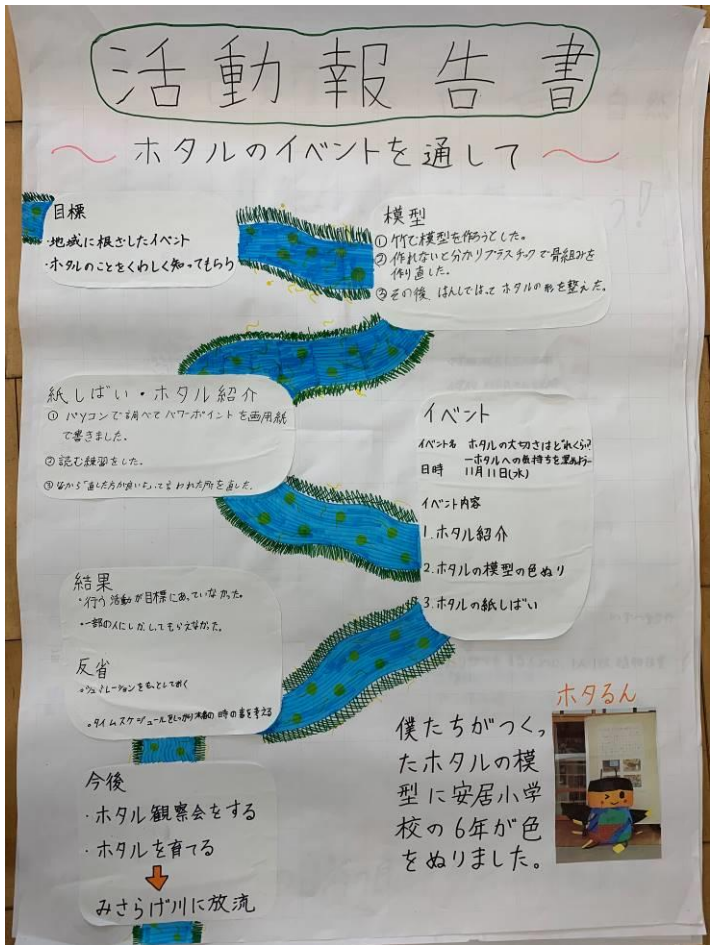 活動報告書
～ホタルのイベントを通して～
目標
・地域に根ざしたイベント
・ホタルのことをくわしく知ってもらう
模型
① 竹で模型を作ろうとした。
② 作れないと分かりプラスチックで骨組みを
作り直した。
③ その後 はんしではって ホタルの形を整えた。
紙しばい・ホタル紹介
① パソコンで調べて パワーポイントを画用紙
で書きました。
② 読む練習をした。
③ 皆から「直した方が良いよ」って言われた所を直した。
イベント
イベント名 ホタルの大切さはどれくらい?
ーホタルへの気持ちを深めようー
日時 11月11日(水)
イベント内容
1.ホタル紹介
2.ホタルの模型の色ぬり
3.ホタルの紙しばい
結果
・行う活動が目標にあっていなかった。
・一部の人にしか してもらえなかった。
反省
・シュミレーションをもっとしておく
・タイムスケジュールをしっかり の時の事を考える
今後
・ホタル観察会をする
・ホタルを育てる
みさらげ川に放流
ホタるん
僕たちがつくっ
たホタルの模
型に安居小学
校の6年が色
をぬりました。